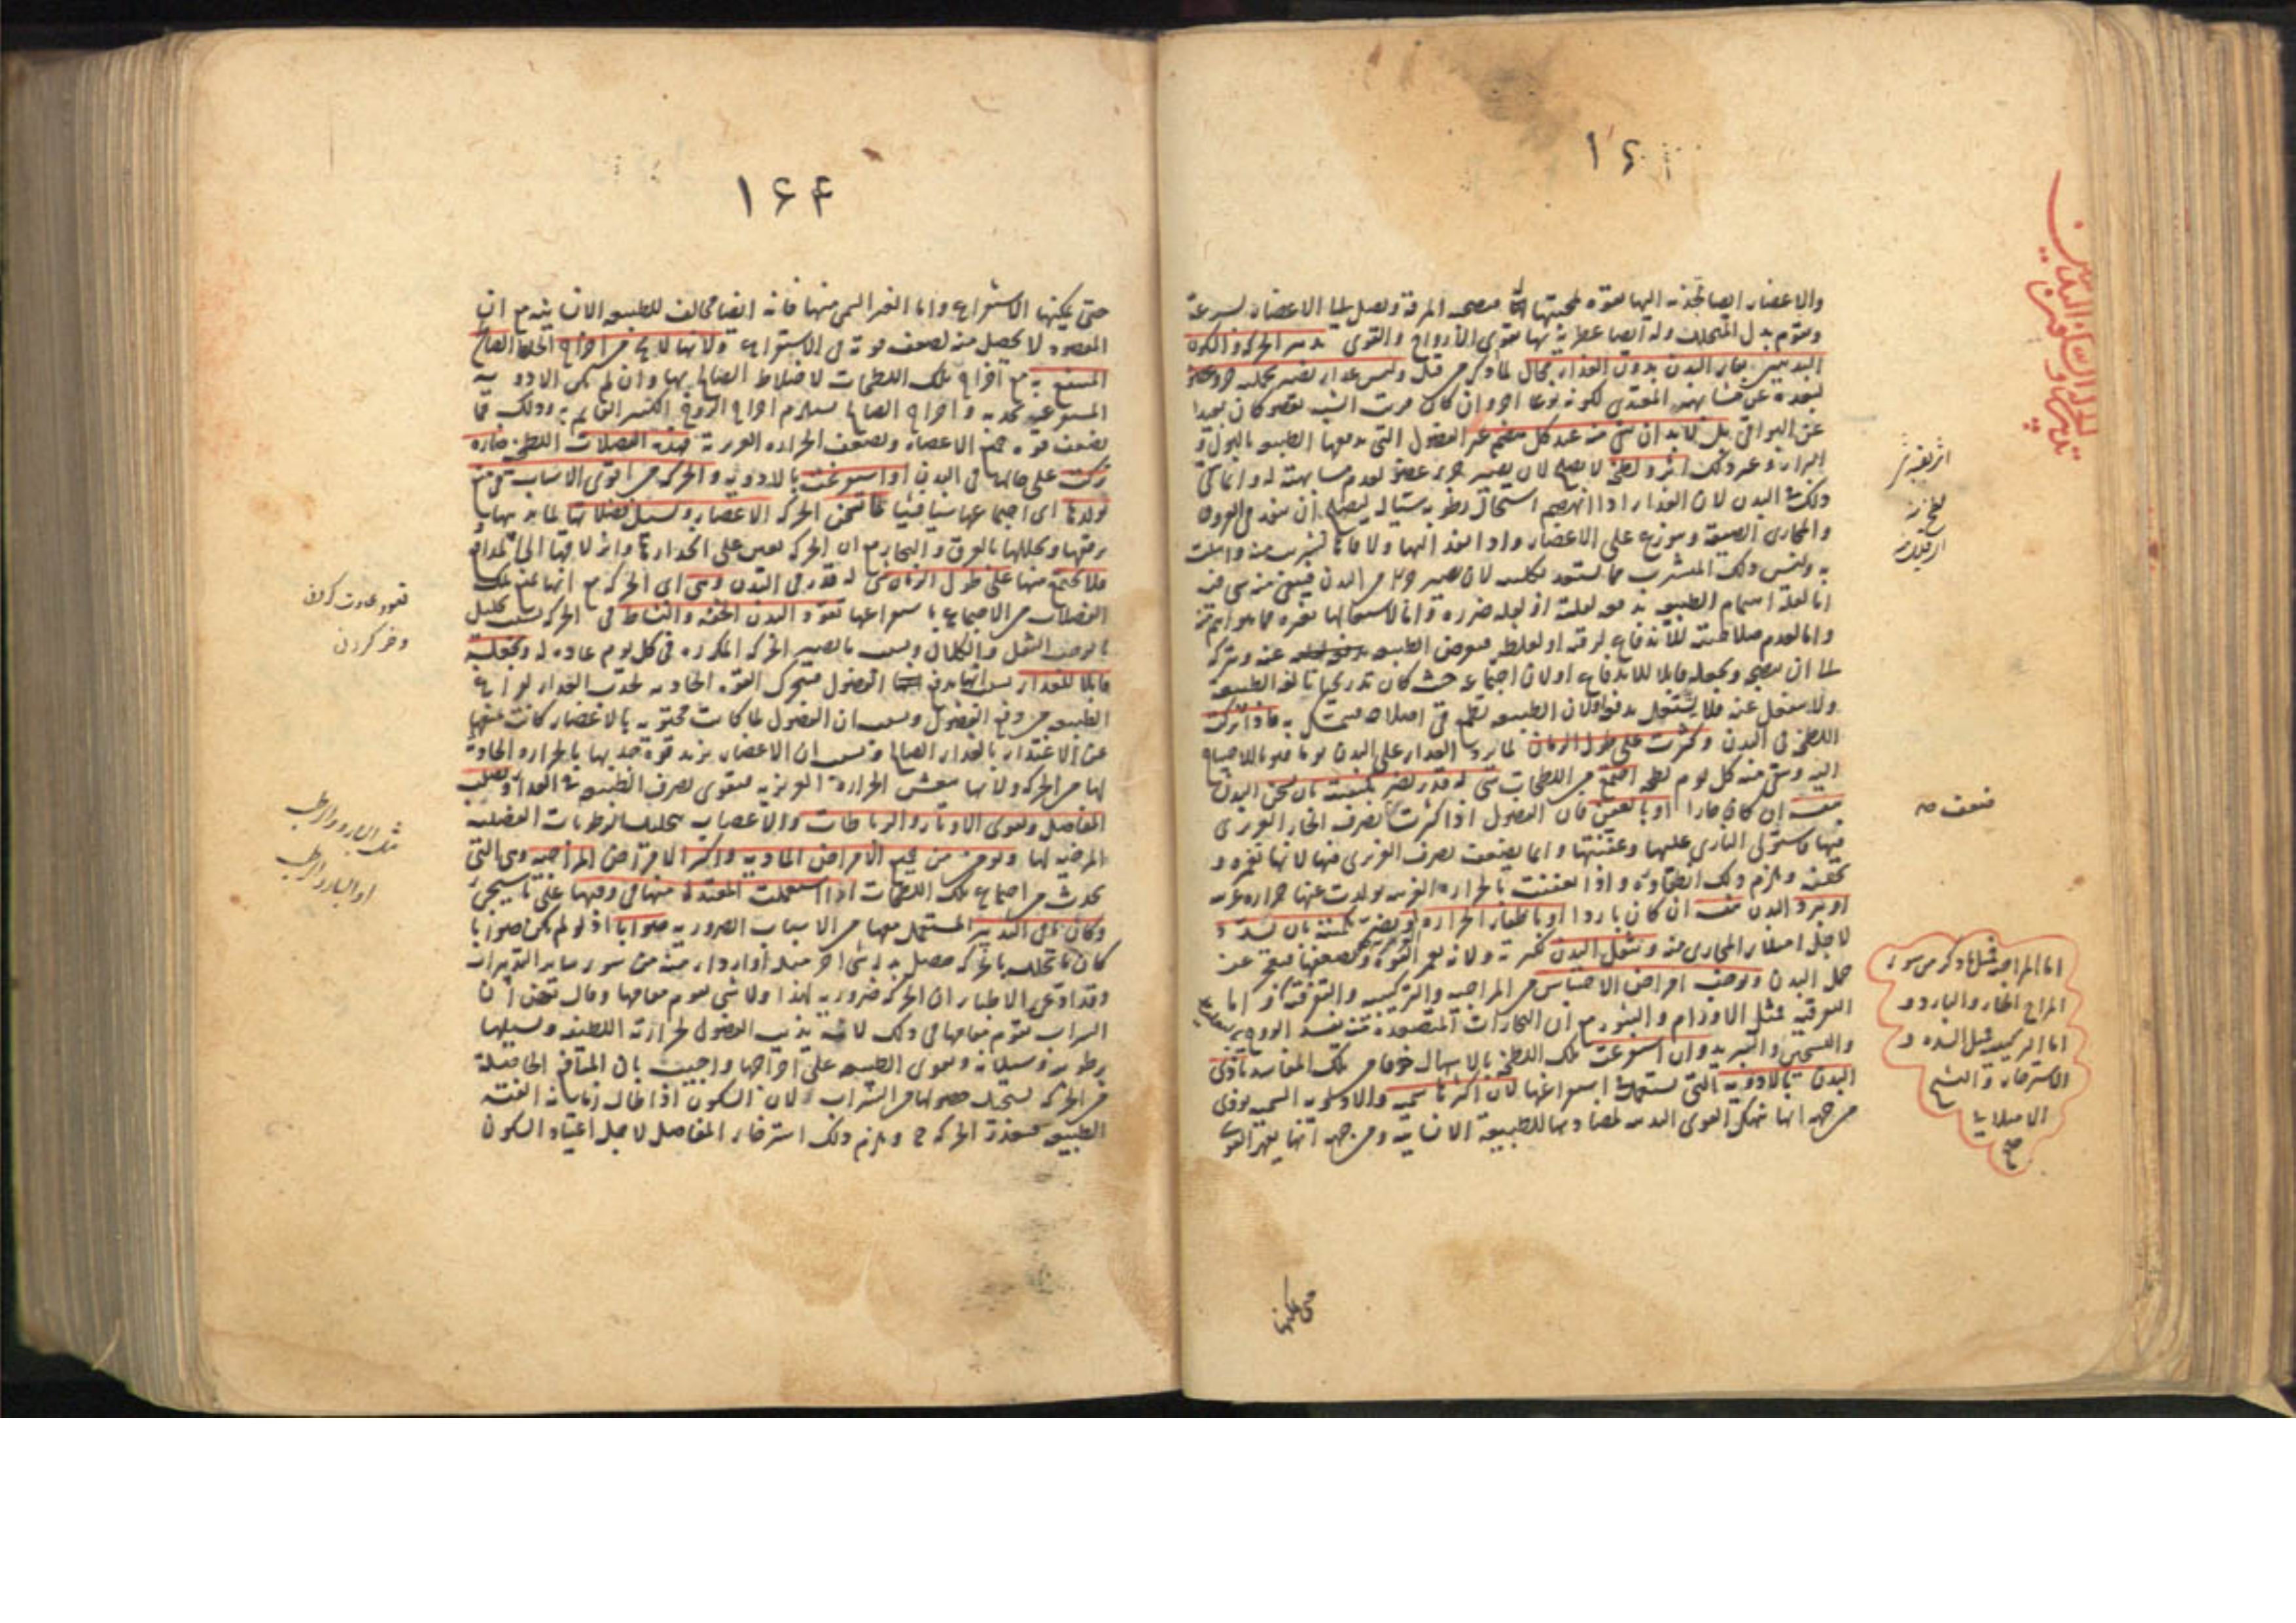 ١٤
والاعضاء ايضا تجذبه اليها بقوة لمحبتها فيصحبه المرقة ويصل الى الاعضاء بسرعة
ويقوم بدل المتحلل وله ايضا عطرية بها يقوى الأرواح والقوى تدبير الحركة والسكون
البدنيين بقاء البدن بدون الغذاء محال لما ذكر من قبل وليس غذاء يصير بجملته جزء عضو
لبعده عن مشابهة المغتذي لكونه نوعا آخر وان كان قريب الشبه لعضو كان بعيدا
عن البواقي بل لابد ان يبقى منه عند كل هضم غير الفضول التي يدفعها الطبيعة بالبول و
البراز وغير ذلك اثر ولطخة لا يصلح لان يصير جزء عضو لعدم مشابهته له وانما يبقى
ذلك في البدن لان الغذاء اذا انهضم استحال رطوبة سيالة ليصلح ان ينفذ في العروق
والمجاري الضيقة ويتوزع على الاعضاء واذا نفذ اليها ولاقاها تشربت منه وابتلت
به وليس ذلك المتشرب مما يستعد بكليته لان يصير جزء من البدن فيبقى منه شيء فيه
اما لقلة اهتمام الطبيعة بدفعه لقلته او لقلة ضرره واما لاشتغالها بغيره مما هو اهم منه
واما لعدم صلاحيته للاندفاع لرقته او لغلظه فيعرض الطبيعة عنه ويتركه
الى ان ينضج ويجعله قابلا للاندفاع او لان اجتماعه حيث كان تدريجيا تألفه الطبيعة
ولا ينفعل عنه فلا يشتغل بدفعه ولان الطبيعة تطمع في اصلاحه فيمسك به فاذا تركت
اللطخ في البدن وكثرت على طول الزمان لما يرد الغذاء على البدن يوما فيوما للاحتياج
اليه ويبقى منه كل يوم لطخة اجتمع من اللطخات شيء له قدر يضر بكيفيته بان يسخن البدن
بنفسه إن كان حارا او بالعفن فان الفضول اذا كثرت يصرف الحار الغريزي
فيها فاستولى الناري عليها وعفنتها وانما يضعف تصرف الغريزي فيها لانها تغمره و
تخنقه ويلزم ذلك انطفاؤه واذا تعفنت بالحرارة الغريبة تولدت عنها حرارة غريبة
او يبرد البدن بنفسه ان كان باردا او باطفاء الحرارة او يضر بكميته بان يسدد
لاجل امتلاء المجاري منه ويثقل البدن لكثرته ولانه يغمر القوى ويضعفها فيعجز عن
حمل البدن ويوجب امراض الاحتباس من المزاجية والتركيبية والتفرقية اما
التفرقية فمثل الاورام والبثور مع ان البخارات المتصعدة عنه تفسد الروح
والتسخين والتبريد وان استفرغت تلك اللطخ بالاسهال خوفا من تلك المفاسد تأذى
البدن بالادوية التي يستعمل في استفراغها لان اكثرها سمية والادوية السمية تؤذي
من جهة انها تنهك القوى البدنية لمضادتها للطبيعة الانسانية ومن جهة انها يقهر القوى
حتى يمكنها
تدبير الحركة والسكون البدنيين
ضعف
اما المزاجية فمثل ما ذكر من سوء
المزاج الحار والبارد و
اما التركيبية فمثل السدة و
الاسترخاء و التشنج
الامتلائي
١٦٤
حتى يمكنها الاستفراغ واما الغير السمي منها فانه ايضا مخالف للطبيعة الانسانية مع ان
المقصود لا يحصل منه لضعف قوته في الاستفراغ ولانها لا يخلو من اخراج الخلط الصالح
المنتفع به مع اخراج تلك اللطخات لاختلاط الصالح بها وان لم يكن الادوية
المستفرغة سمية واخراج الصالح يستلزم اخراج الروح الكثير القائم به وذلك مما
يضعف قوة جميع الاعضاء ويضعف الحرارة الغريزية فهذه الفضلات اللطخية ضارة
تركت على حالها في البدن او استفرغت بالادوية والحركة من اقوى الاسباب في منع
تولدها اى اجتماعها شيئا فشيئا لما تسخن الحركة الاعضاء وتسيل فضلاتها لما يذيبها و
يرققها ويحللها بالعرق والبخار مع ان الحركة تعين على انحدارها وانزلاقها الى المدافع
فلا يجتمع منها على طول الزمان شيء له قدر في البدن وهي اى الحركة مع انها تمنع تلك
الفضلات من الاجتماع باستفراغها تعود البدن الخفة والنشاط في الحركة بسبب تحليل
ما يوجب الثقل والكلال وبسبب ما تصير الحركة المتكررة في كل يوم عادة له وتجعله
قابلا للغذاء بسبب انها يدفع الفضول فيتحرك القوة الجاذبة لجذب الغذاء لفراغ
الطبيعة من دفع الفضول وبسبب ان الفضول لما كانت محتوية بالاعضاء كانت تمنعها
عن الاغتذاء بالغذاء الصالح وبسبب ان الاعضاء يزيد قوة جذبها بالحرارة الحادثة
لها من الحركة ولانها تنعش الحرارة الغريزية فيتقوى تصرف الطبيعة في الغذاء وتصلب
المفاصل وتقوى الاوتار والرباطات والاعصاب بتحليل الرطوبات الفضلية
المرخية لها وتؤمن من جميع الامراض المادية واكثر الامراض المزاجية وهي التي
تحدث من اجتماع تلك اللطخات اذا استعملت المعتدلة منها في وقتها على ما سيجيء
وكان باقى التدبير المستعمل معها من الاسباب الضرورية صوابا اذ لو لم يكن صوابا
كان ما تحلله بالحركة حصل بدله شيء آخر مثله او اردأ منه من سوء سائر التدبيرات
وقد ادعى الاطباء ان الحركة ضرورية لهذا ولا شيء يقوم مقامها وقال بعض ان
الشراب يقوم مقامها في ذلك لانه يذيب الفضول لحرارته اللطيفة ويسيلها
برطوبته وسيلانه ويقوى الطبيعة على اخراجها واجيب بان المنافع الحاصلة
من الحركة يستحيل حصولها من الشراب ولان السكون اذا طال زمانه الفته
الطبيعة فتعذرت الحركة ح ويلزم ذلك استرخاء المفاصل لاجل اعتياد السكون
قعود عادت كردن
و خو كردن
مثل البارد والرطب
او البارد الرطب